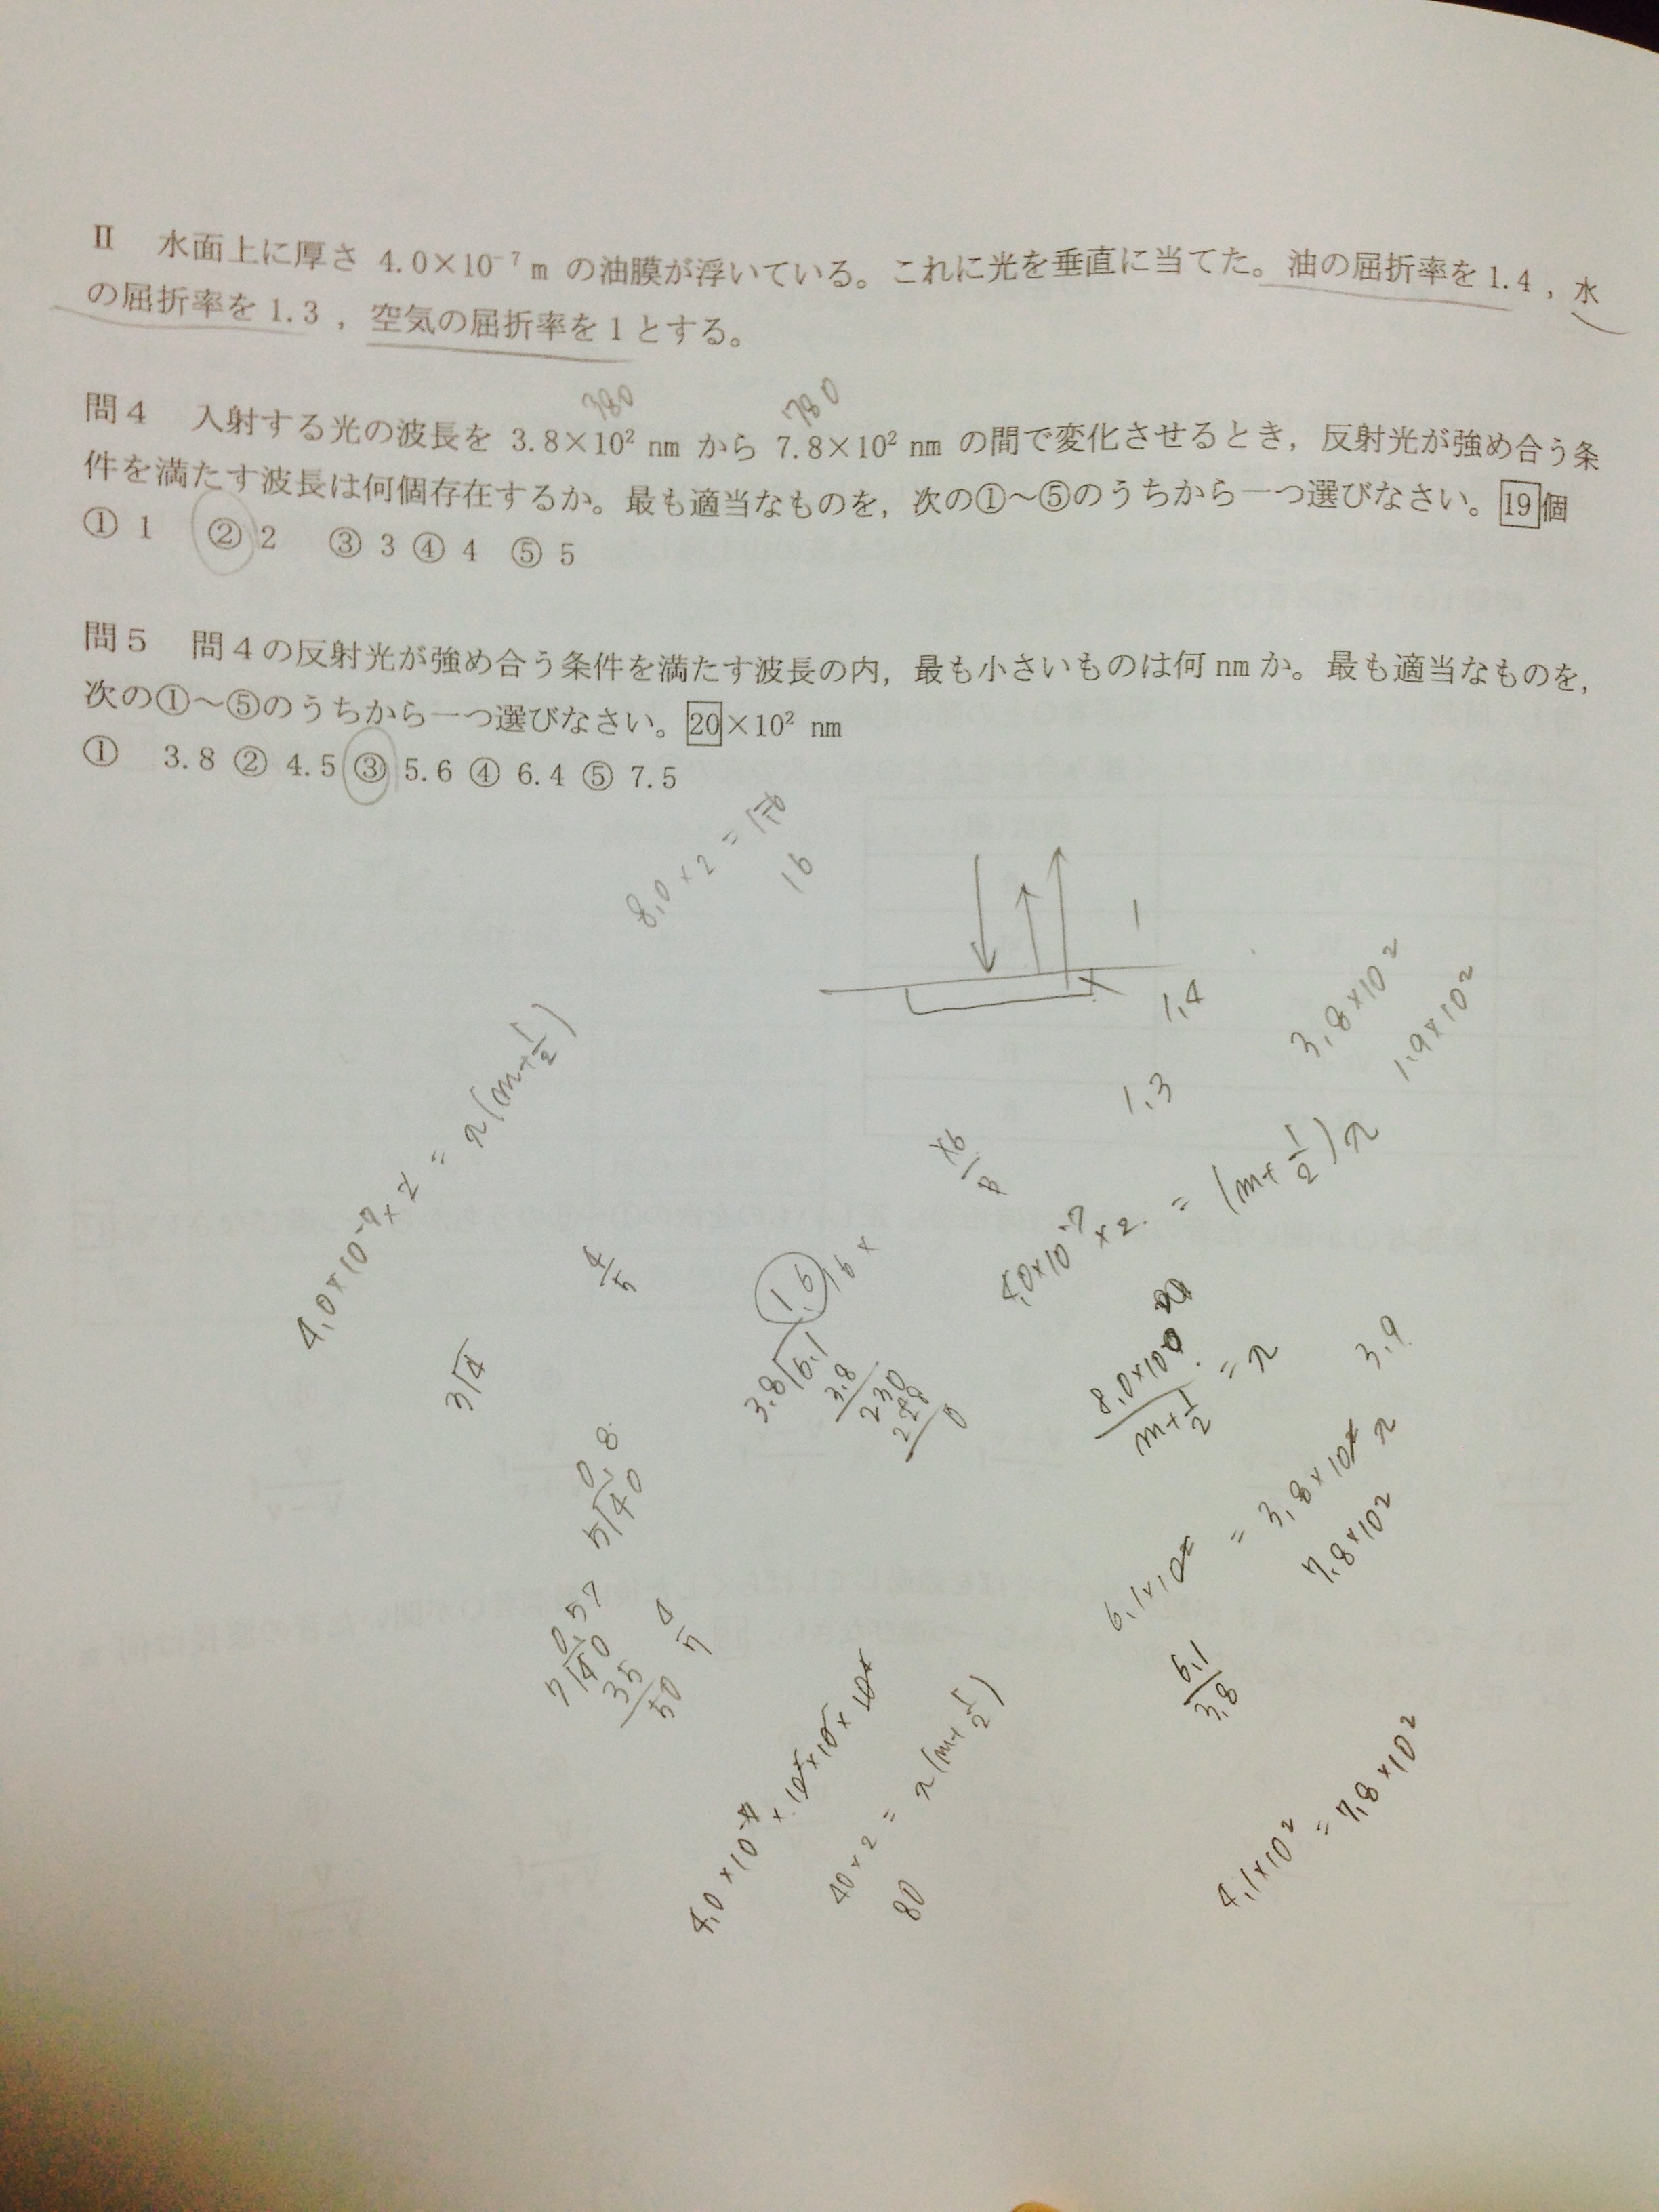 Ⅱ 水面上に厚さ 4.0×10⁻⁷m の油膜が浮いている。これに光を垂直に当てた。油の屈折率を1.4，水
の屈折率を1.3，空気の屈折率を1とする。
380
780
問４ 入射する光の波長を 3.8×10² nm から 7.8×10² nm の間で変化させるとき，反射光が強め合う条
件を満たす波長は何個存在するか。最も適当なものを，次の①～⑤のうちから一つ選びなさい。19個
① 1 ② 2 ③ 3 ④ 4 ⑤ 5
問５ 問４の反射光が強め合う条件を満たす波長の内，最も小さいものは何 nm か。最も適当なものを，
次の①～⑤のうちから一つ選びなさい。20×10² nm
① 3.8 ② 4.5 ③ 5.6 ④ 6.4 ⑤ 7.5
8.0×2=
16
1
1.4
1.3
3.8×10²
1.9×10²
4.0×10⁻⁷×2=λ(m+1/2)
4.0×10⁻⁷×2=(m+1/2)λ
4/5
1.6
16×
3.8√6.1
3.8
230
228
0
3√4
=λ
m+1/2
3.9
0.8
5√40
6.1×10²=3.8×10²λ
7.8×10²
0.57
7√40
35
50
4/7
6.1/3.8
4.0×10⁻⁷×10²×10⁵×10²
40×2=λ(m+1/2)
80
4.1×10²=7.8×10²